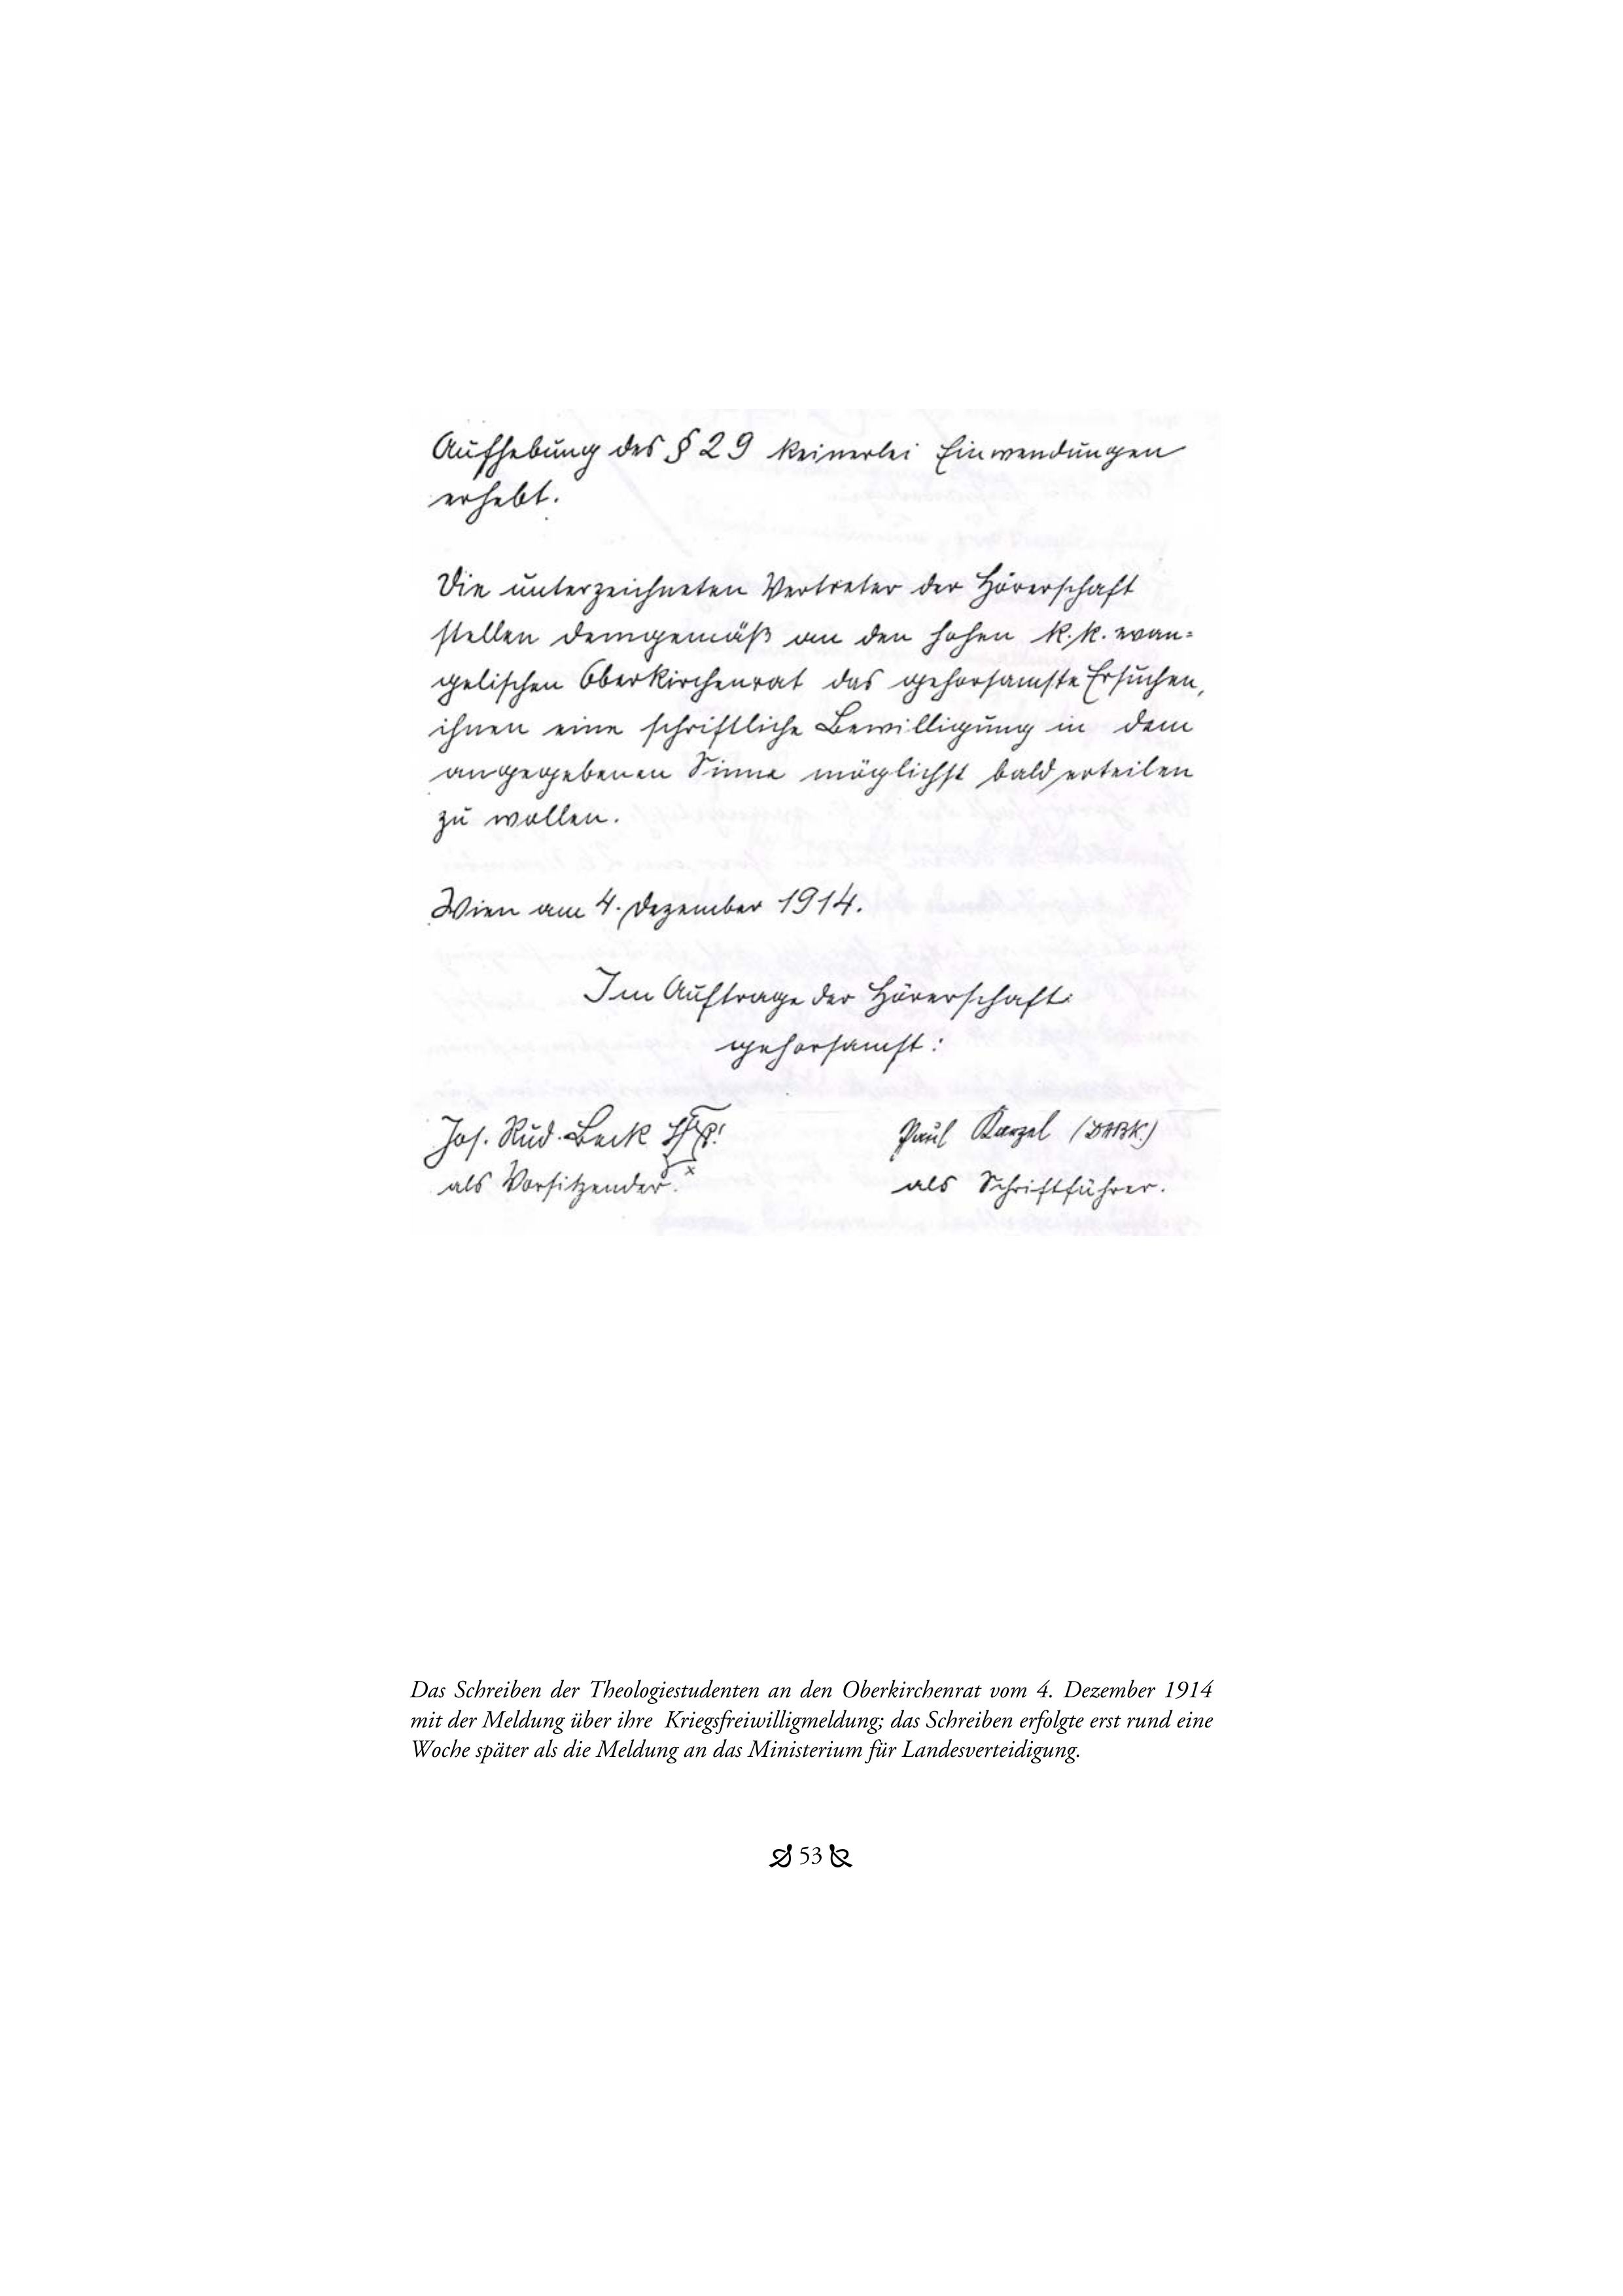 Aufhebung des § 29 keinerlei Einwendungen
erhebt.
Die unterzeichneten Vertreter der Hörerschaft
stellen demgemäß an den hohen k.k. evan=
gelischen Oberkirchenrat das gehorsamste Ersuchen,
ihnen eine schriftliche Bewilligung in dem
angegebenen Sinne möglichst bald erteilen
zu wollen.
Wien am 4. Dezember 1914.
Im Auftrage der Hörerschaft
gehorsamst:
Jos. Rud. Beck
Paul Karzel
als Vorsitzender.
als Schriftführer.
Das Schreiben der Theologiestudenten an den Oberkirchenrat vom 4. Dezember 1914
mit der Meldung über ihre Kriegsfreiwilligmeldung; das Schreiben erfolgte erst rund eine
Woche später als die Meldung an das Ministerium für Landesverteidigung.
53